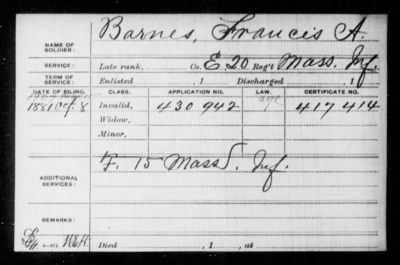 NAME OF SOLDIER: Barnes, Francis A.
SERVICE: Late rank, Co. E, 20 Reg't Mass. Inf.
TERM OF SERVICE: Enlisted , 1 Discharged , 1
DATE OF FILING. CLASS. APPLICATION NO. LAW. CERTIFICATE NO.
1881 Oct. 8 Invalid, 430 942 age 417 414
Widow,
Minor,
ADDITIONAL SERVICES: F. 15 Mass. Inf.
REMARKS:
Died , 1 , at